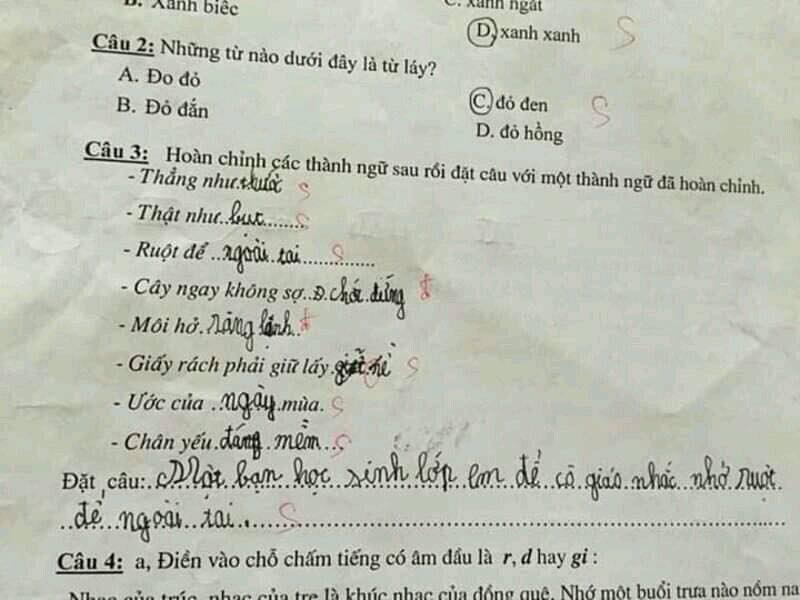 B. Xanh biếc
C. xanh ngắt
D. xanh xanh S
Câu 2: Những từ nào dưới đây là từ láy?
A. Đo đỏ
B. Đỏ đắn
C. đỏ đen S
D. đỏ hồng
Câu 3: Hoàn chỉnh các thành ngữ sau rồi đặt câu với một thành ngữ đã hoàn chỉnh.
- Thẳng như thước S
- Thật như bưc S
- Ruột để ngoài tai S
- Cây ngay không sợ Đ. chết đứng đ
- Môi hở răng lạnh đ
- Giấy rách phải giữ lấy S
- Ước của ngày mùa. S
- Chân yếu đáng mềm S
Đặt câu: Một bạn học sinh lớp em để cô giáo nhắc nhở ruột
để ngoài tai. S
Câu 4: a, Điền vào chỗ chấm tiếng có âm đầu là r, d hay gi :
Nhạc của trúc, nhạc của tre là khúc nhạc của đồng quê. Nhớ một buổi trưa nào nồm na